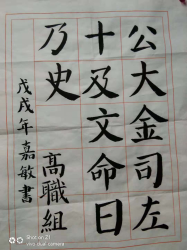 公大金司左
十及文命曰
乃史
高職組
戊戌年嘉敏書
Sharon Z1